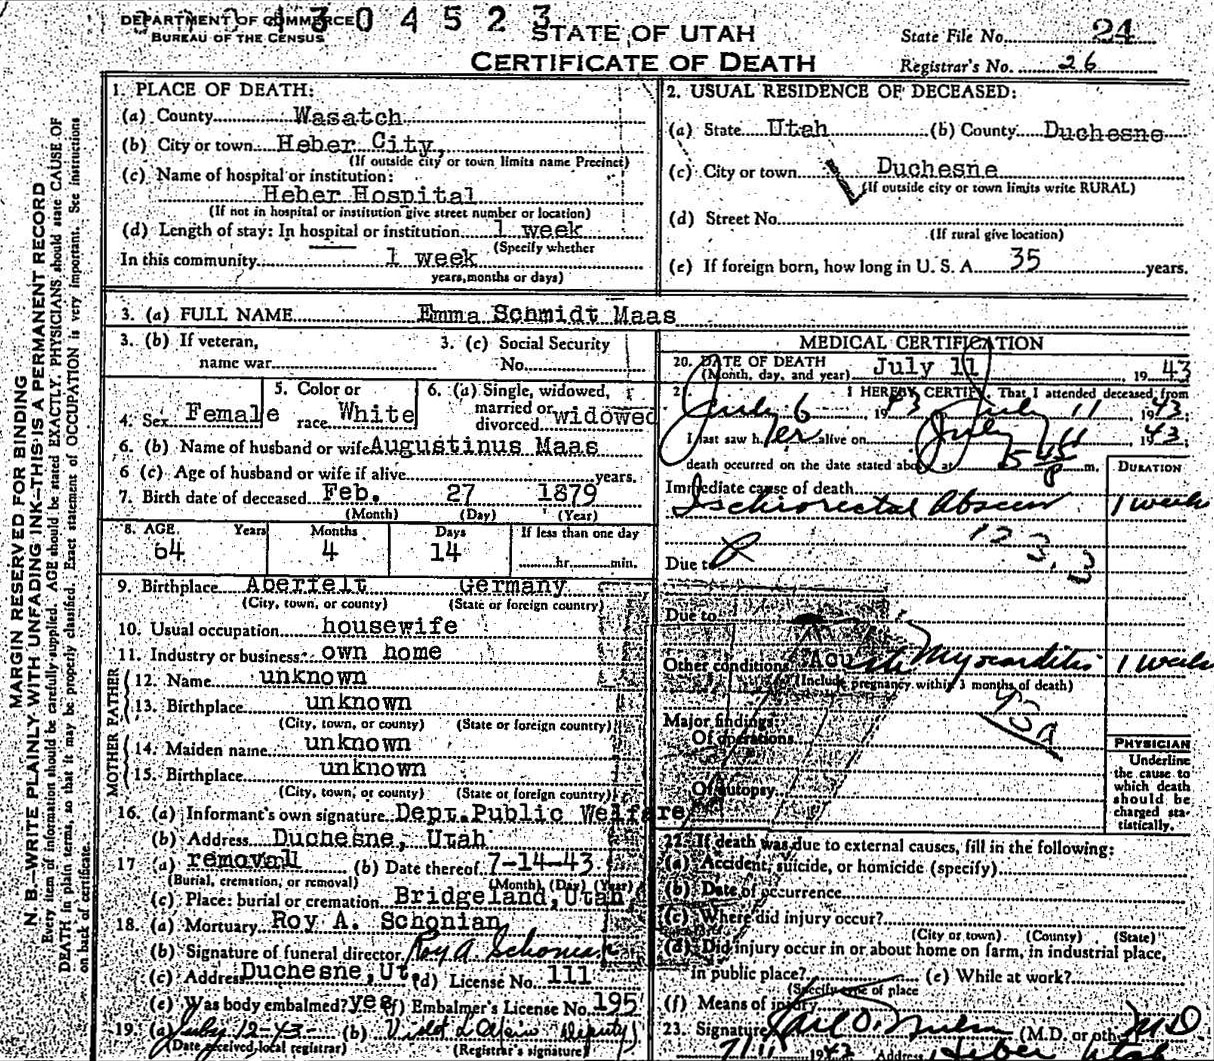 DEPARTMENT OF COMMERCE
BUREAU OF THE CENSUS
1304523
STATE OF UTAH
CERTIFICATE OF DEATH
State File No. 24
Registrar's No. 26
MARGIN RESERVED FOR BINDING
N. B.—WRITE PLAINLY WITH UNFADING INK—THIS IS A PERMANENT RECORD
Every item of information should be carefully supplied. AGE should be stated EXACTLY. PHYSICIANS should state CAUSE OF
DEATH in plain terms, so that it may be properly classified. Exact statement of OCCUPATION is very important. See instructions
on back of certificate.
1. PLACE OF DEATH:
(a) County Wasatch
(b) City or town Heber City,
(If outside city or town limits name Precinct)
(c) Name of hospital or institution:
Heber Hospital
(If not in hospital or institution give street number or location)
(d) Length of stay: In hospital or institution 1 week
(Specify whether
In this community 1 week
years, months or days)
2. USUAL RESIDENCE OF DECEASED:
(a) State Utah (b) County Duchesne
(c) City or town Duchesne
(If outside city or town limits write RURAL)
(d) Street No.
(If rural give location)
(e) If foreign born, how long in U. S. A. 35 years.
3. (a) FULL NAME Emma Schmidt Maas
3. (b) If veteran,
name war
3. (c) Social Security
No.
4. Sex Female
5. Color or
race White
6. (a) Single, widowed,
married or
divorced widowed
6. (b) Name of husband or wife Augustinus Maas
6 (c) Age of husband or wife if alive years.
7. Birth date of deceased Feb. 27 1879
(Month) (Day) (Year)
8. AGE Years Months Days If less than one day
64 4 14 hr. min.
9. Birthplace Aberfelt Germany
(City, town, or county) (State or foreign country)
10. Usual occupation housewife
11. Industry or business own home
FATHER
12. Name unknown
13. Birthplace unknown
(City, town, or county) (State or foreign country)
MOTHER
14. Maiden name unknown
15. Birthplace unknown
(City, town, or county) (State or foreign country)
16. (a) Informant's own signature Dept. Public Welfare
(b) Address Duchesne, Utah
17 (a) removal (b) Date thereof 7-14-43
(Burial, cremation, or removal) (Month) (Day) (Year)
(c) Place: burial or cremation Bridgeland, Utah
18. (a) Mortuary Roy A. Schonian
(b) Signature of funeral director Roy A. Schonian
(c) Address Duchesne, Ut. (d) License No. 111
(e) Was body embalmed? yes (f) Embalmer's License No. 195
19. (a) July 12-43 (b) (Deputy)
(Date received local registrar) (Registrar's signature)
MEDICAL CERTIFICATION
20. DATE OF DEATH July 11 19 43
(Month, day, and year)
21. I HEREBY CERTIFY That I attended deceased from
July 6 1943 July 11 1943
I last saw her alive on July 11, 1943,
death occurred on the date stated above at 5 45 P m.
DURATION
Immediate cause of death
Ischiorectal Abscess 1 week
123.3
Due to
Due to
Other conditions Acute Myocarditis 1 week
(Include pregnancy within 3 months of death)
93a
Major findings:
Of operations
Of autopsy
PHYSICIAN
Underline
the cause to
which death
should be
charged sta-
tistically.
22. If death was due to external causes, fill in the following:
(a) Accident, suicide, or homicide (specify)
(b) Date of occurrence
(c) Where did injury occur?
(City or town) (County) (State)
(d) Did injury occur in or about home on farm, in industrial place,
in public place? (e) While at work?
(Specify type of place
(f) Means of injury
23. Signature (M.D. or other) MD
7/11 1943 Address Heber Utah